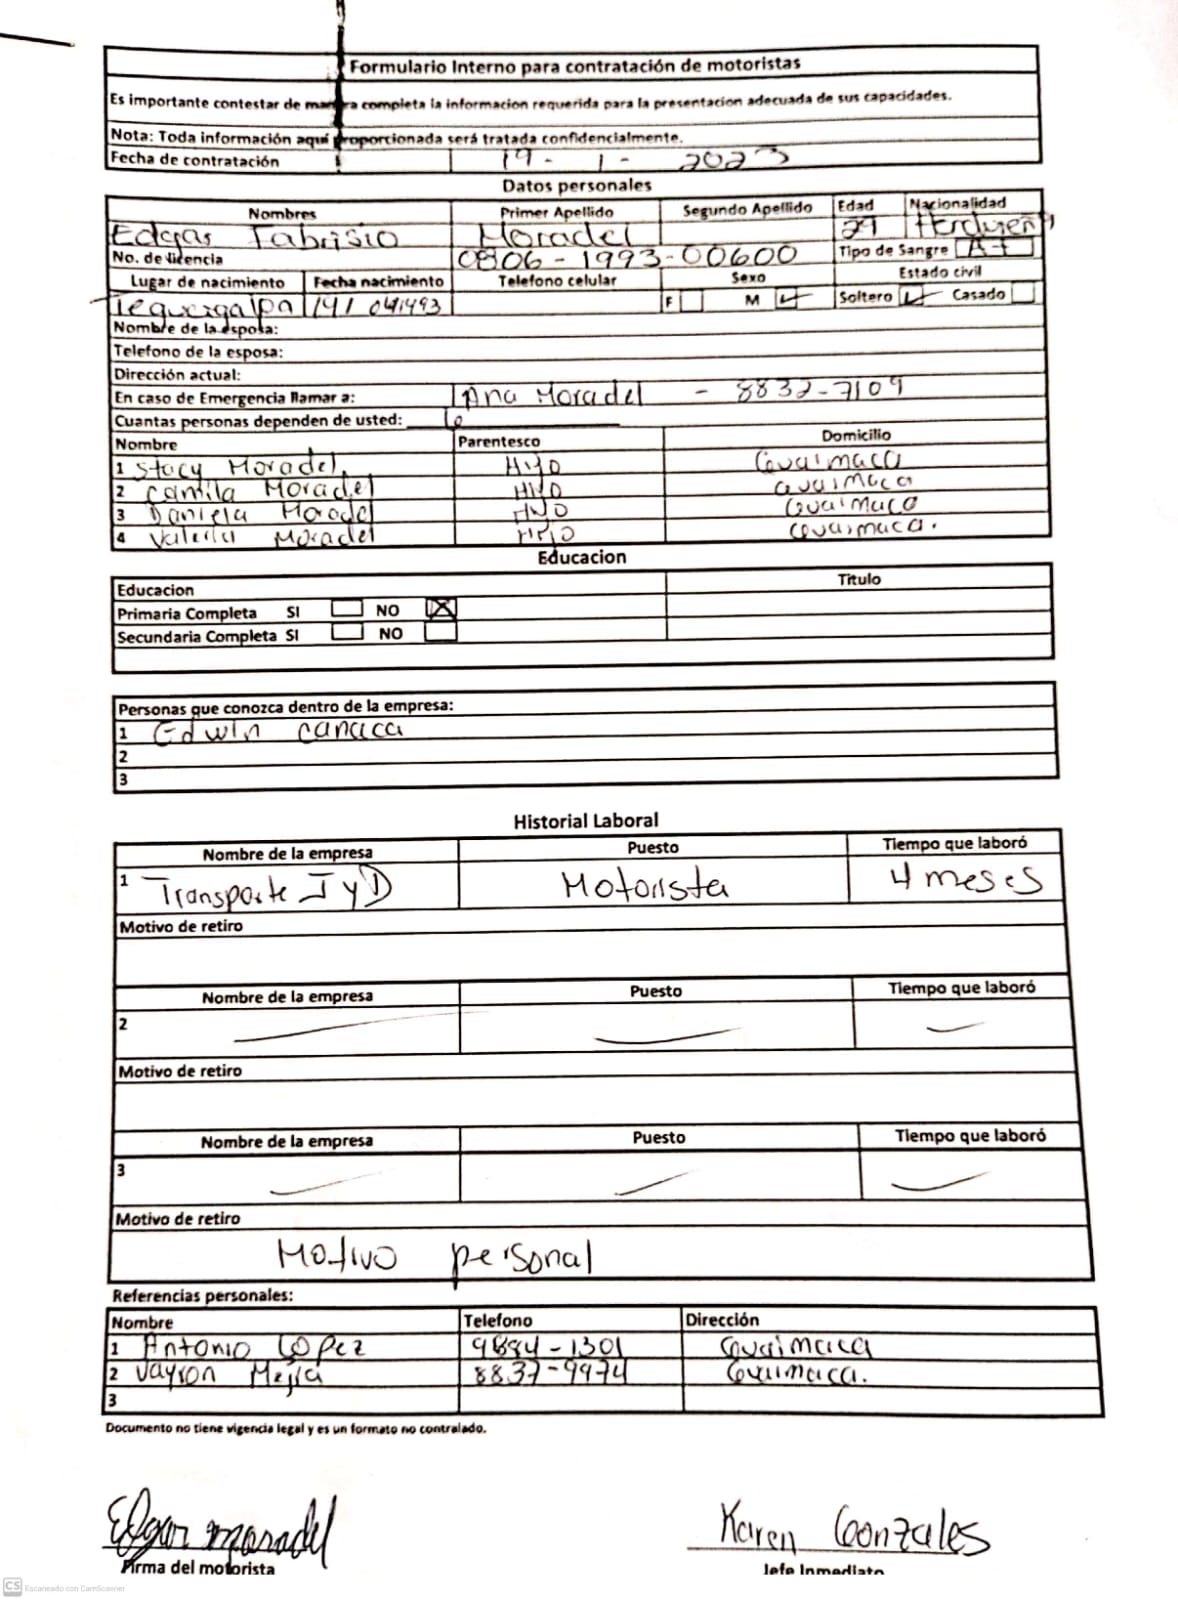 Formulario Interno para contratación de motoristas
Es importante contestar de manera completa la informacion requerida para la presentacion adecuada de sus capacidades.
Nota: Toda información aquí proporcionada será tratada confidencialmente.
Fecha de contratación 19 - 1 - 2023
Datos personales
Nombres Primer Apellido Segundo Apellido Edad Nacionalidad
Edgar Fabrisio Moradel 29
No. de licencia 0806-1993-00600 Tipo de Sangre A+
Lugar de nacimiento Fecha nacimiento Telefono celular Sexo Estado civil
F M Soltero Casado
Nombre de la esposa:
Telefono de la esposa:
Dirección actual:
En caso de Emergencia llamar a: Ana Moradel - 8832-7109
Cuantas personas dependen de usted:
Nombre Parentesco Domicilio
1 Stacy Moradel Hijo Guaimaca
2 Camila Moradel Hijo Guaimaca
3 Daniela Moradel Hijo Guaimaca
4 Valeria Moradel Hijo Guaimaca.
Educacion
Educacion Titulo
Primaria Completa SI NO X
Secundaria Completa SI NO
Personas que conozca dentro de la empresa:
1 Edwin Canaca
2
3
Historial Laboral
Nombre de la empresa Puesto Tiempo que laboró
1 Transporte J y D Motorista 4 meses
Motivo de retiro
Nombre de la empresa Puesto Tiempo que laboró
2
Motivo de retiro
Nombre de la empresa Puesto Tiempo que laboró
3
Motivo de retiro
Motivo personal
Referencias personales:
Nombre Telefono Dirección
1 Antonio Lopez 9894-1301 Guaimaca
2 Mejia 8837-9974 Guaimaca.
3
Documento no tiene vigencia legal y es un formato no contralado.
Edgar Moradel Karen Gonzales
Firma del motorista Jefe Inmediato
CS Escaneado con CamScanner